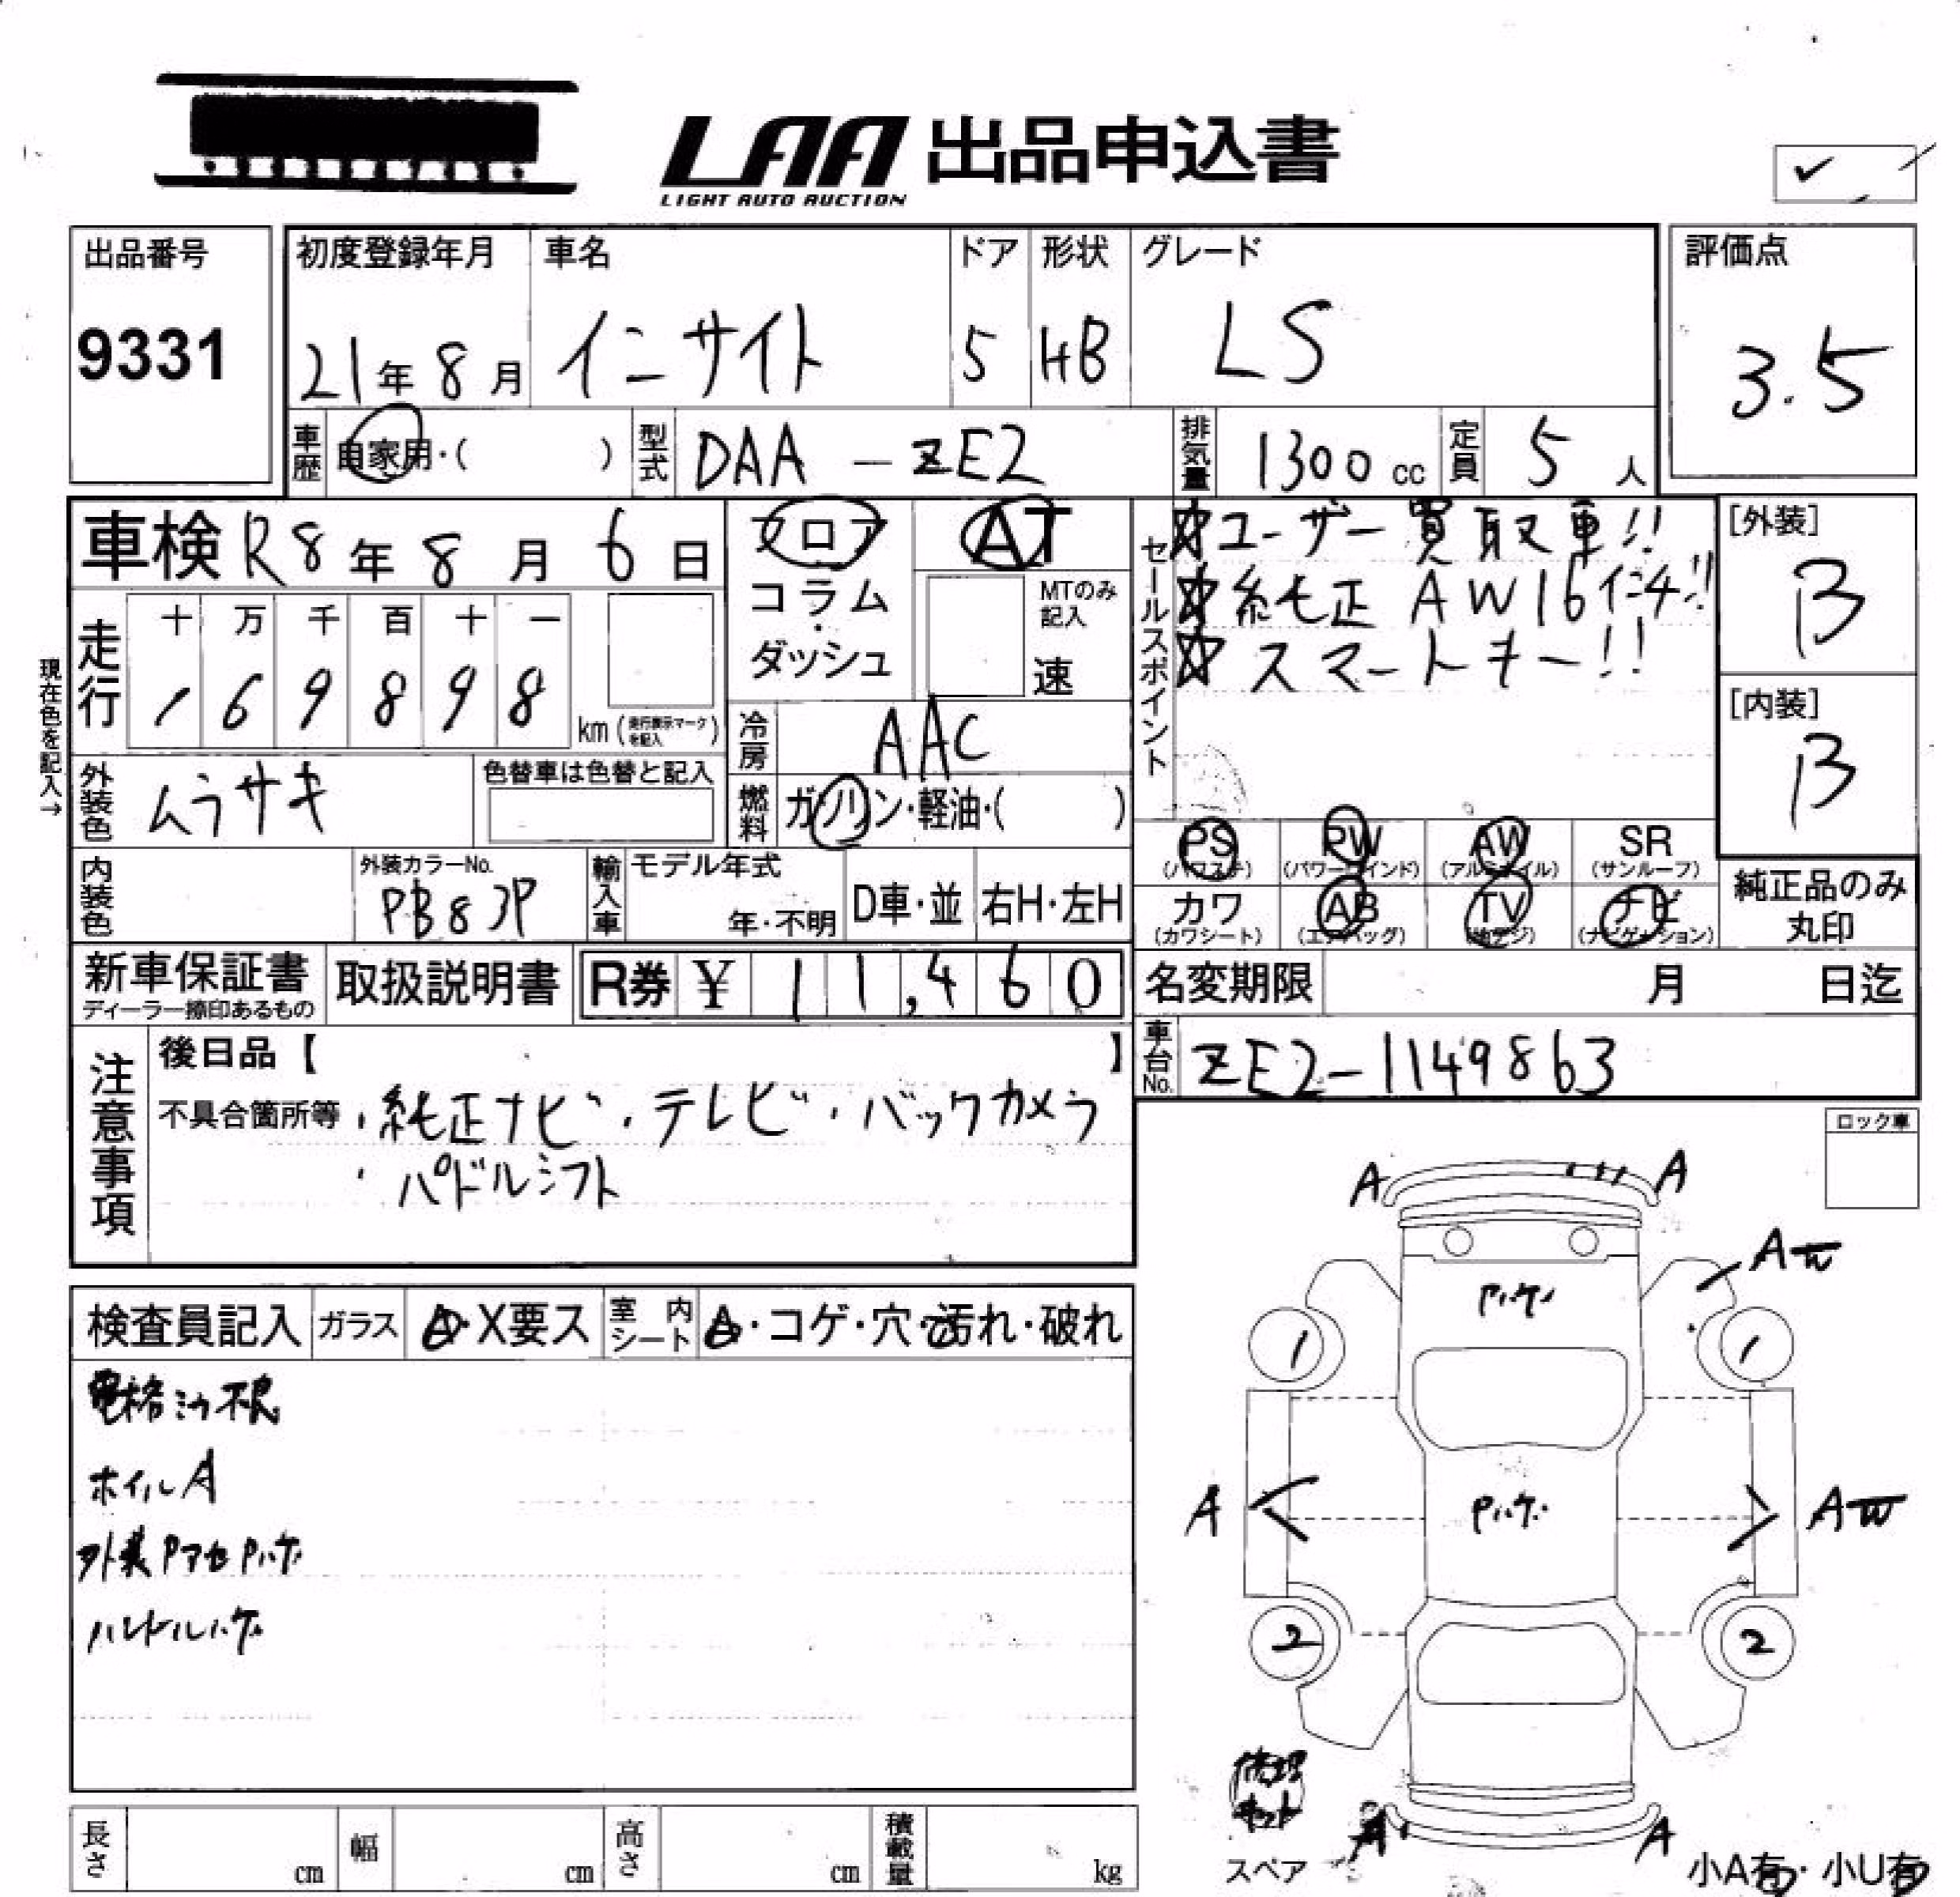 LAA 出品申込書
LIGHT AUTO AUCTION
✓
出品番号
9331
初度登録年月
21年8月
車名
インサイト
ドア
5
形状
HB
グレード
LS
評価点
3.5
車歴 自家用・( )
型式 DAA-ZE2
排気量 1300cc
定員 5人
車検 R8年8月6日
フロア
コラム・ダッシュ
AT
MTのみ記入
速
セールスポイント
☆ユーザー買取車!!
☆純正AW16インチ!!
☆スマートキー!!
[外装]
B
[内装]
B
現在色を記入→
走行
十 万 千 百 十 一
1 6 9 8 9 8
km(走行表示マークを記入)
冷房 AAC
外装色 ムラサキ
色替車は色替と記入
燃料 ガソリン・軽油・( )
PS (パワステ)
PW (パワーウインド)
AW (アルミホイル)
SR (サンルーフ)
カワ (カワシート)
AB (エアバッグ)
TV (地デジ)
ナビ (ナビゲーション)
純正品のみ丸印
内装色
外装カラーNo.
PB83P
輸入車
モデル年式
年・不明
D車・並
右H・左H
新車保証書
ディーラー捺印あるもの
取扱説明書
R券 ¥ 11,460
名変期限 月 日迄
車台No. ZE2-1149863
注意事項
後日品【 】
不具合箇所等 ・純正ナビ・テレビ・バックカメラ
・パドルシフト
ロック車
検査員記入
ガラス A・X要ス
室内シート A・コゲ・穴・汚れ・破れ
電格ミラー不良
ホイルA
外装PアセPハゲ
ハンドルハゲ
A A
AW
Pハゲ
1 1
A Pハゲ AW
2 2
修理キット
スペア
A A
小A有・小U有
長さ cm
幅 cm
高さ cm
積載量 kg